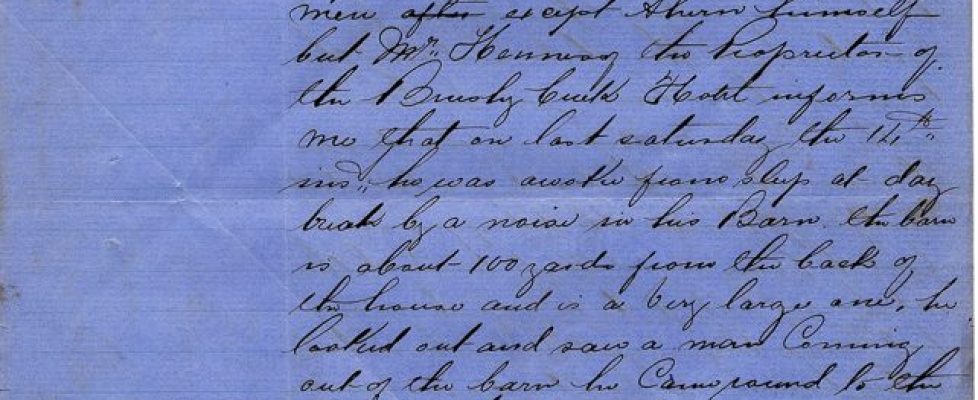 men after except Ahern himself
but Mr. Henning the Proprietor of
the Brushy Creek Hotel informs
me that on last saturday the 14th
inst, he was awoke from sleep at day
break by a noise in his Barn. the barn
is about 100 yards from the back of
the house and is a Very large one, he
looked out and saw a man Coming
out of the barn he Came round to the